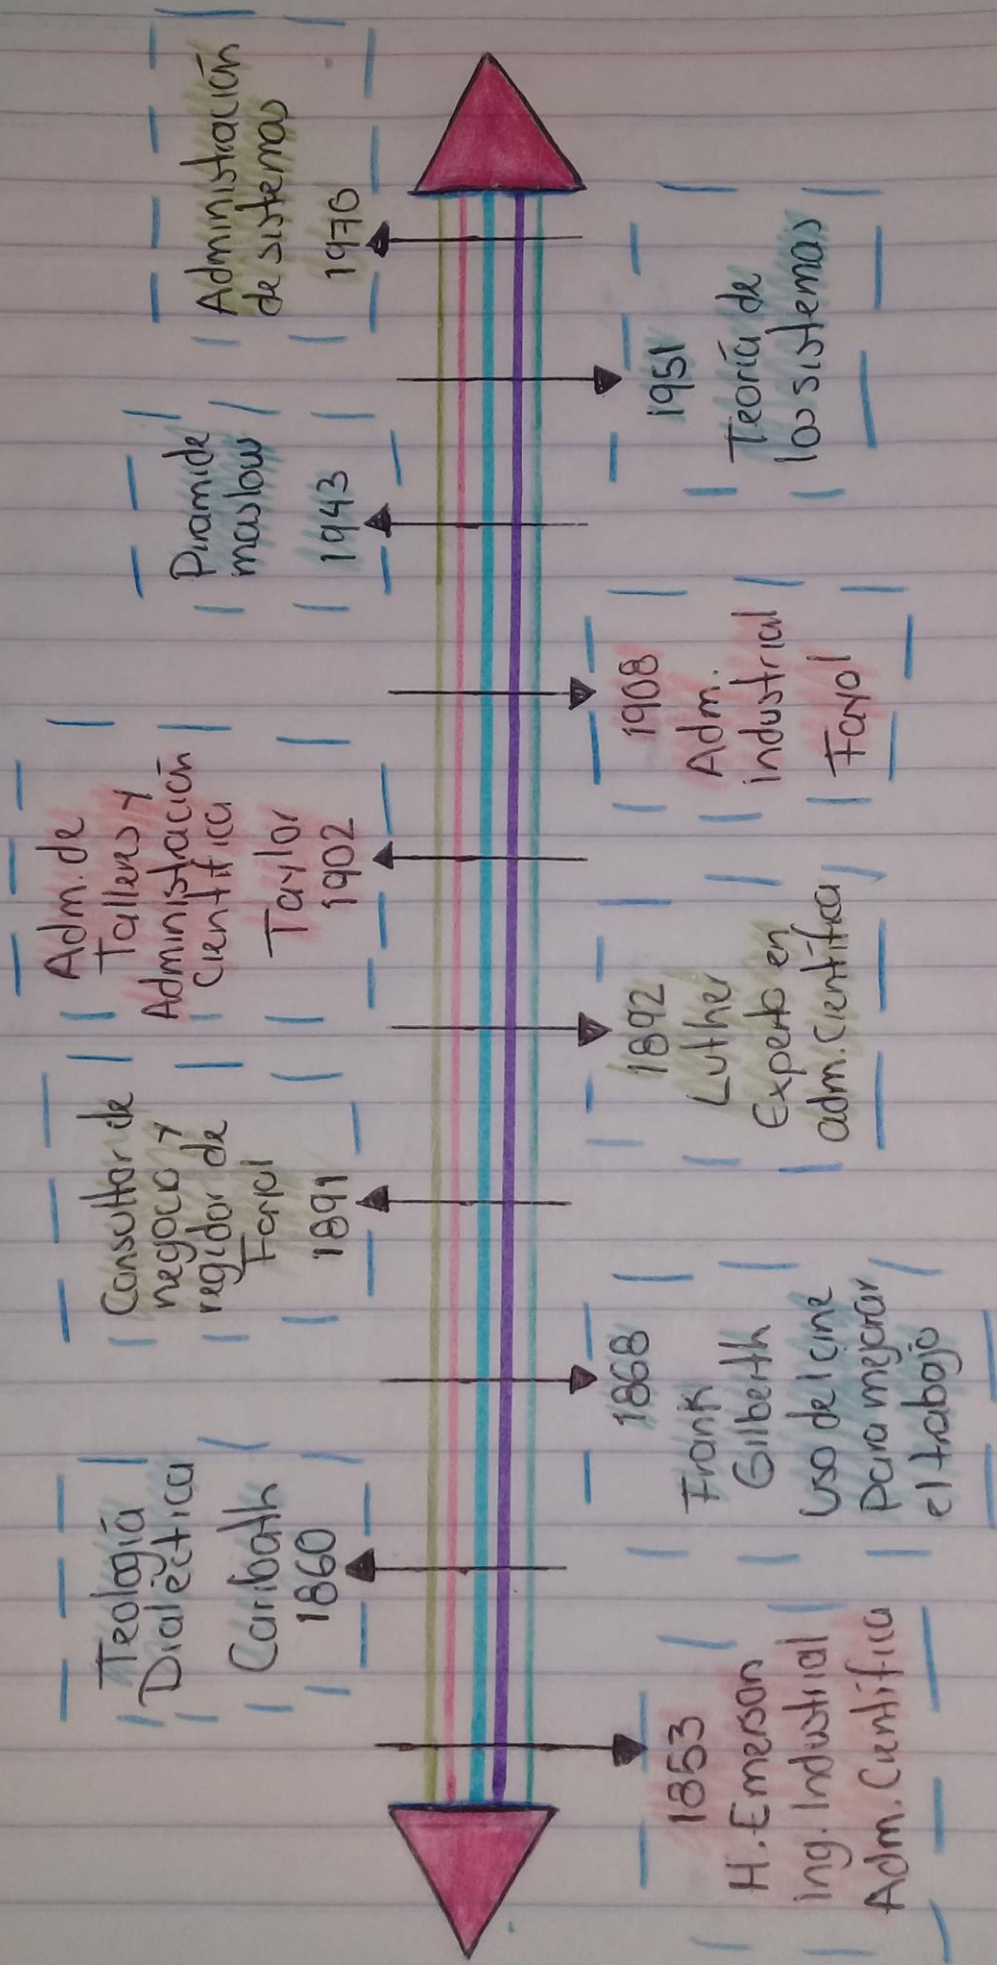 1853
H. Emerson
ing. Industrial
Adm. Científica
Teología
Dialéctica
Caribath
1860
1868
Frank
Gilberth
Uso del cine
Para mejorar
el trabajo
Consultor de
negocio y
regidor de
Fayol
1891
1892
Luther
Experto en
adm. Científica
Adm. de
Talleres y
Administración
Científica
Taylor
1902
1908
Adm.
industrial
Fayol
Piramide
maslow
1943
1951
Teoría de
los sistemas
Administración
de sistemas
1970